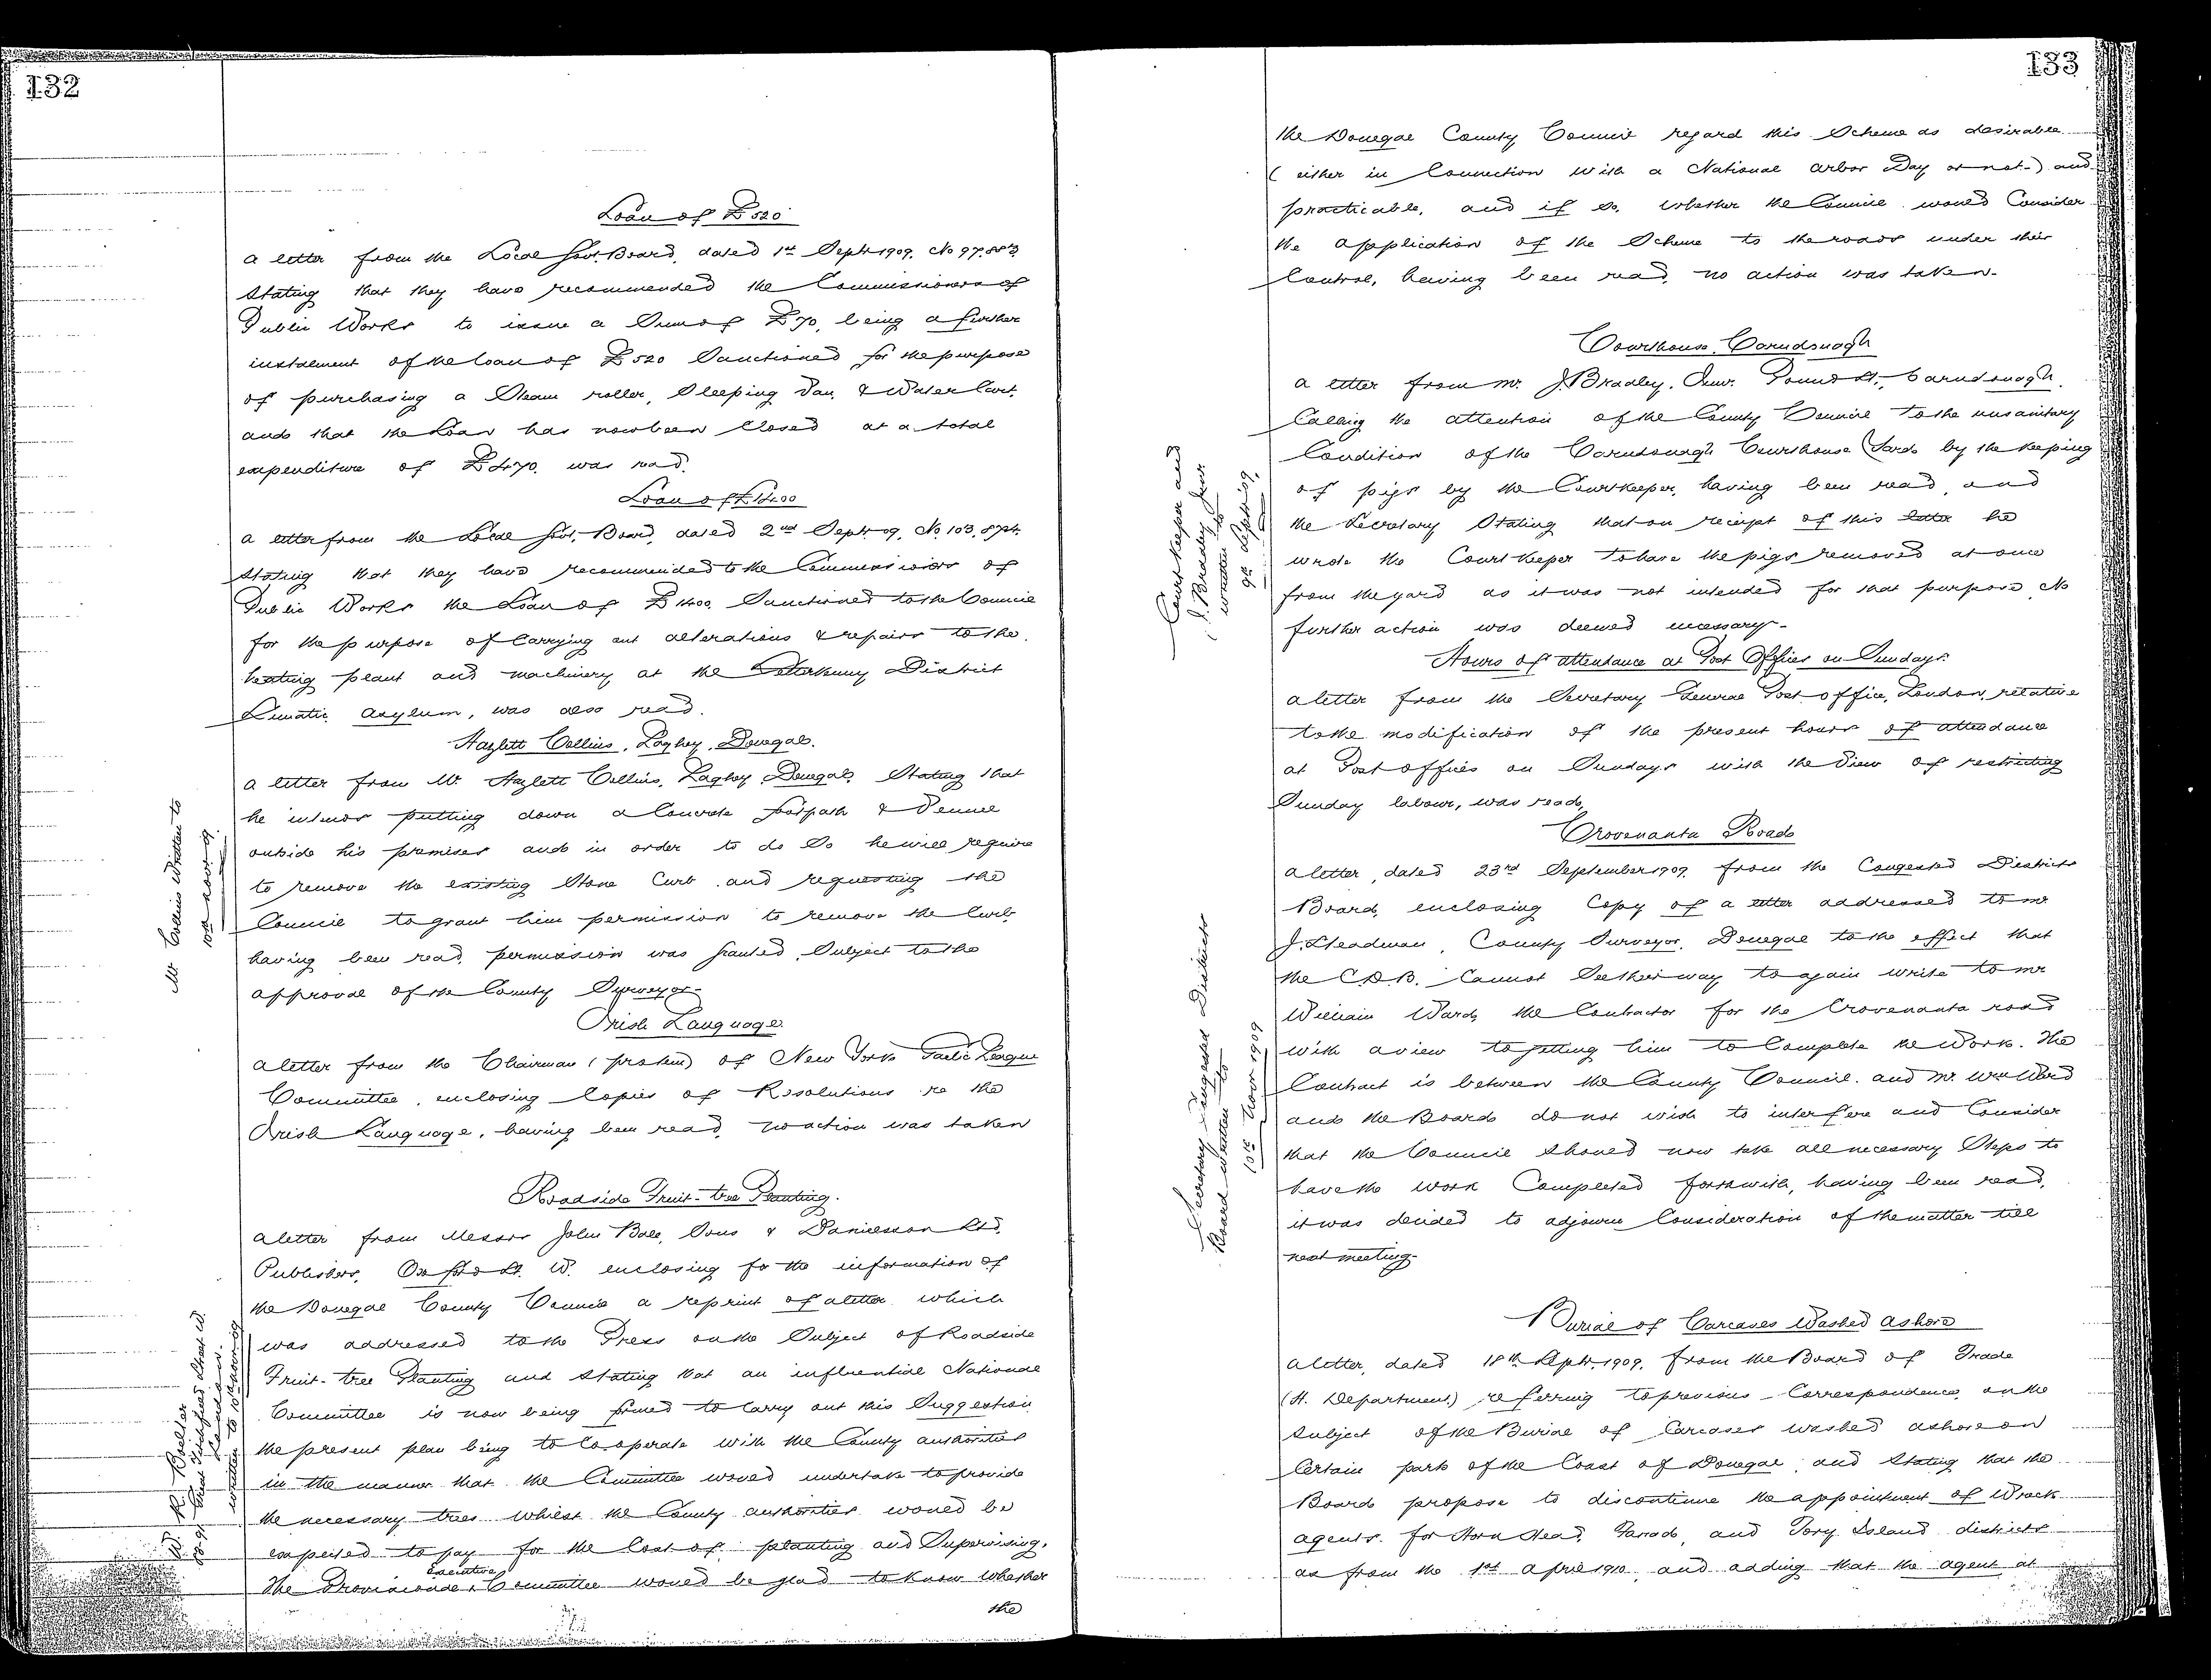 132
Loan of £520
a letter from the Local Govt. Board, dated 1st Septr 1909, No 97,883
Stating that they have recommended the Commissioners of
Public Works to issue a Sum of £70, being a further
instalment of the loan of £520 Sanctioned for the purpose
of purchasing a Steam roller, Sleeping Van, & Water Cart,
and that the Loan has now been Closed at a total
expenditure of £470. was read.
Loan of £1400
a letter from the Local Govt. Board, dated 2nd Septr. 09, No 103,
Stating that they have recommended to the Commissioners of
Public Works the Loan of £1400, Sanctioned to the Council
for the purpose of Carrying out alterations & repairs to the
heating plant and machinery at the Letterkenny District
Lunatic Asylum, was also read.
Hazlett Collins, Laghey, Donegal.
Mr Collins Written to
10th Novr 09.
a letter from Mr. Hazlett Collins, Laghey Donegal, Stating that
he intends putting down a Concrete footpath & Pennel
outside his premises and in order to do So he will require
to remove the existing Stone Curb and requesting the
Council to grant him permission to remove the Curb
having been read, permission was granted, Subject to the
approval of the County Surveyor-
Irish Language
a letter from the Chairman (protem) of New York Gaelic League
Committee, enclosing Copies of Resolutions re the
Irish Language, having been read, no action was taken
Roadside Fruit-tree Planting.
a letter from Messrs John Bale, Sons & Danielsson Ltd,
Publishers, Oxford St. W. enclosing for the information of
the Donegal County Council a reprint of a letter which
was addressed to the Press on the Subject of Roadside
Fruit-tree Planting and Stating that an influential National
Committee is now being formed to Carry out this Suggestion
the present plan being to Co-operate with the County authorities
in the manner that the Committee would undertake to provide
the necessary trees whilst the County authorities would be
expected to pay for the Cost of planting and Supervising.
The Provisional Executive Committee would be glad to know whether
the
133
the Donegal County Council regard this Scheme as desirable
(either in Connection with a National Arbor Day or not-) and
practicable, and if so, whether the Council would Consider
the application of the Scheme to the roads under their
Control, having been read, no action was taken-
Courthouse, Carndonagh
Court Keeper and
J. Bradley Junr
written to
9th Septr 09.
a letter from Mr. J. Bradley, Junr. Pound St., Carndonagh,
Calling the attention of the County Council to the unsanitary
Condition of the Carndonagh Courthouse Yard by the keeping
of pigs by the Courtkeeper, having been read, and
the Secretary Stating that on receipt of this letter he
wrote the Court Keeper to have the pigs removed at once
from the yard as it was not intended for that purpose No
further action was deemed necessary-
Hours of attendance at Post Offices on Sundays.
a letter from the Secretary General Post office, London, relative
to the modification of the present hours of attendance
at Post offices on Sundays with the View of restricting
Sunday labour, was read,
Crovenanta Road
Secretary Congested Districts
Board written to
10th Novr 1909
a letter, dated 23rd September 1909, from the Congested Districts
Board, enclosing Copy of a letter addressed to Mr
J. Steadman, County Surveyor, Donegal to the effect that
the C.D.B. Cannot See their way to again write to Mr
William Ward, the Contractor for the Crovenanta road
with a view to getting him to Complete the Work. The
Contract is between the County Council and Mr. Wm Ward
and the Board do not wish to interfere and Consider
that the Council should now take all necessary Steps to
have the work Completed forthwith, having been read,
it was decided to adjourn Consideration of the matter till
next meeting-
Burial of Carcases Washed ashore
a letter, dated 18th Septr. 1909, from the Board of Trade
(H. Department) referring to previous Correspondence on the
subject of the Burial of Carcases washed ashore on
Certain parts of the Coast of Donegal, and Stating that the
Board propose to discontinue the appointment of Wreck
agents for Horn Head, and Tory Island districts
as from the 1st April 1910, and adding that the agent at